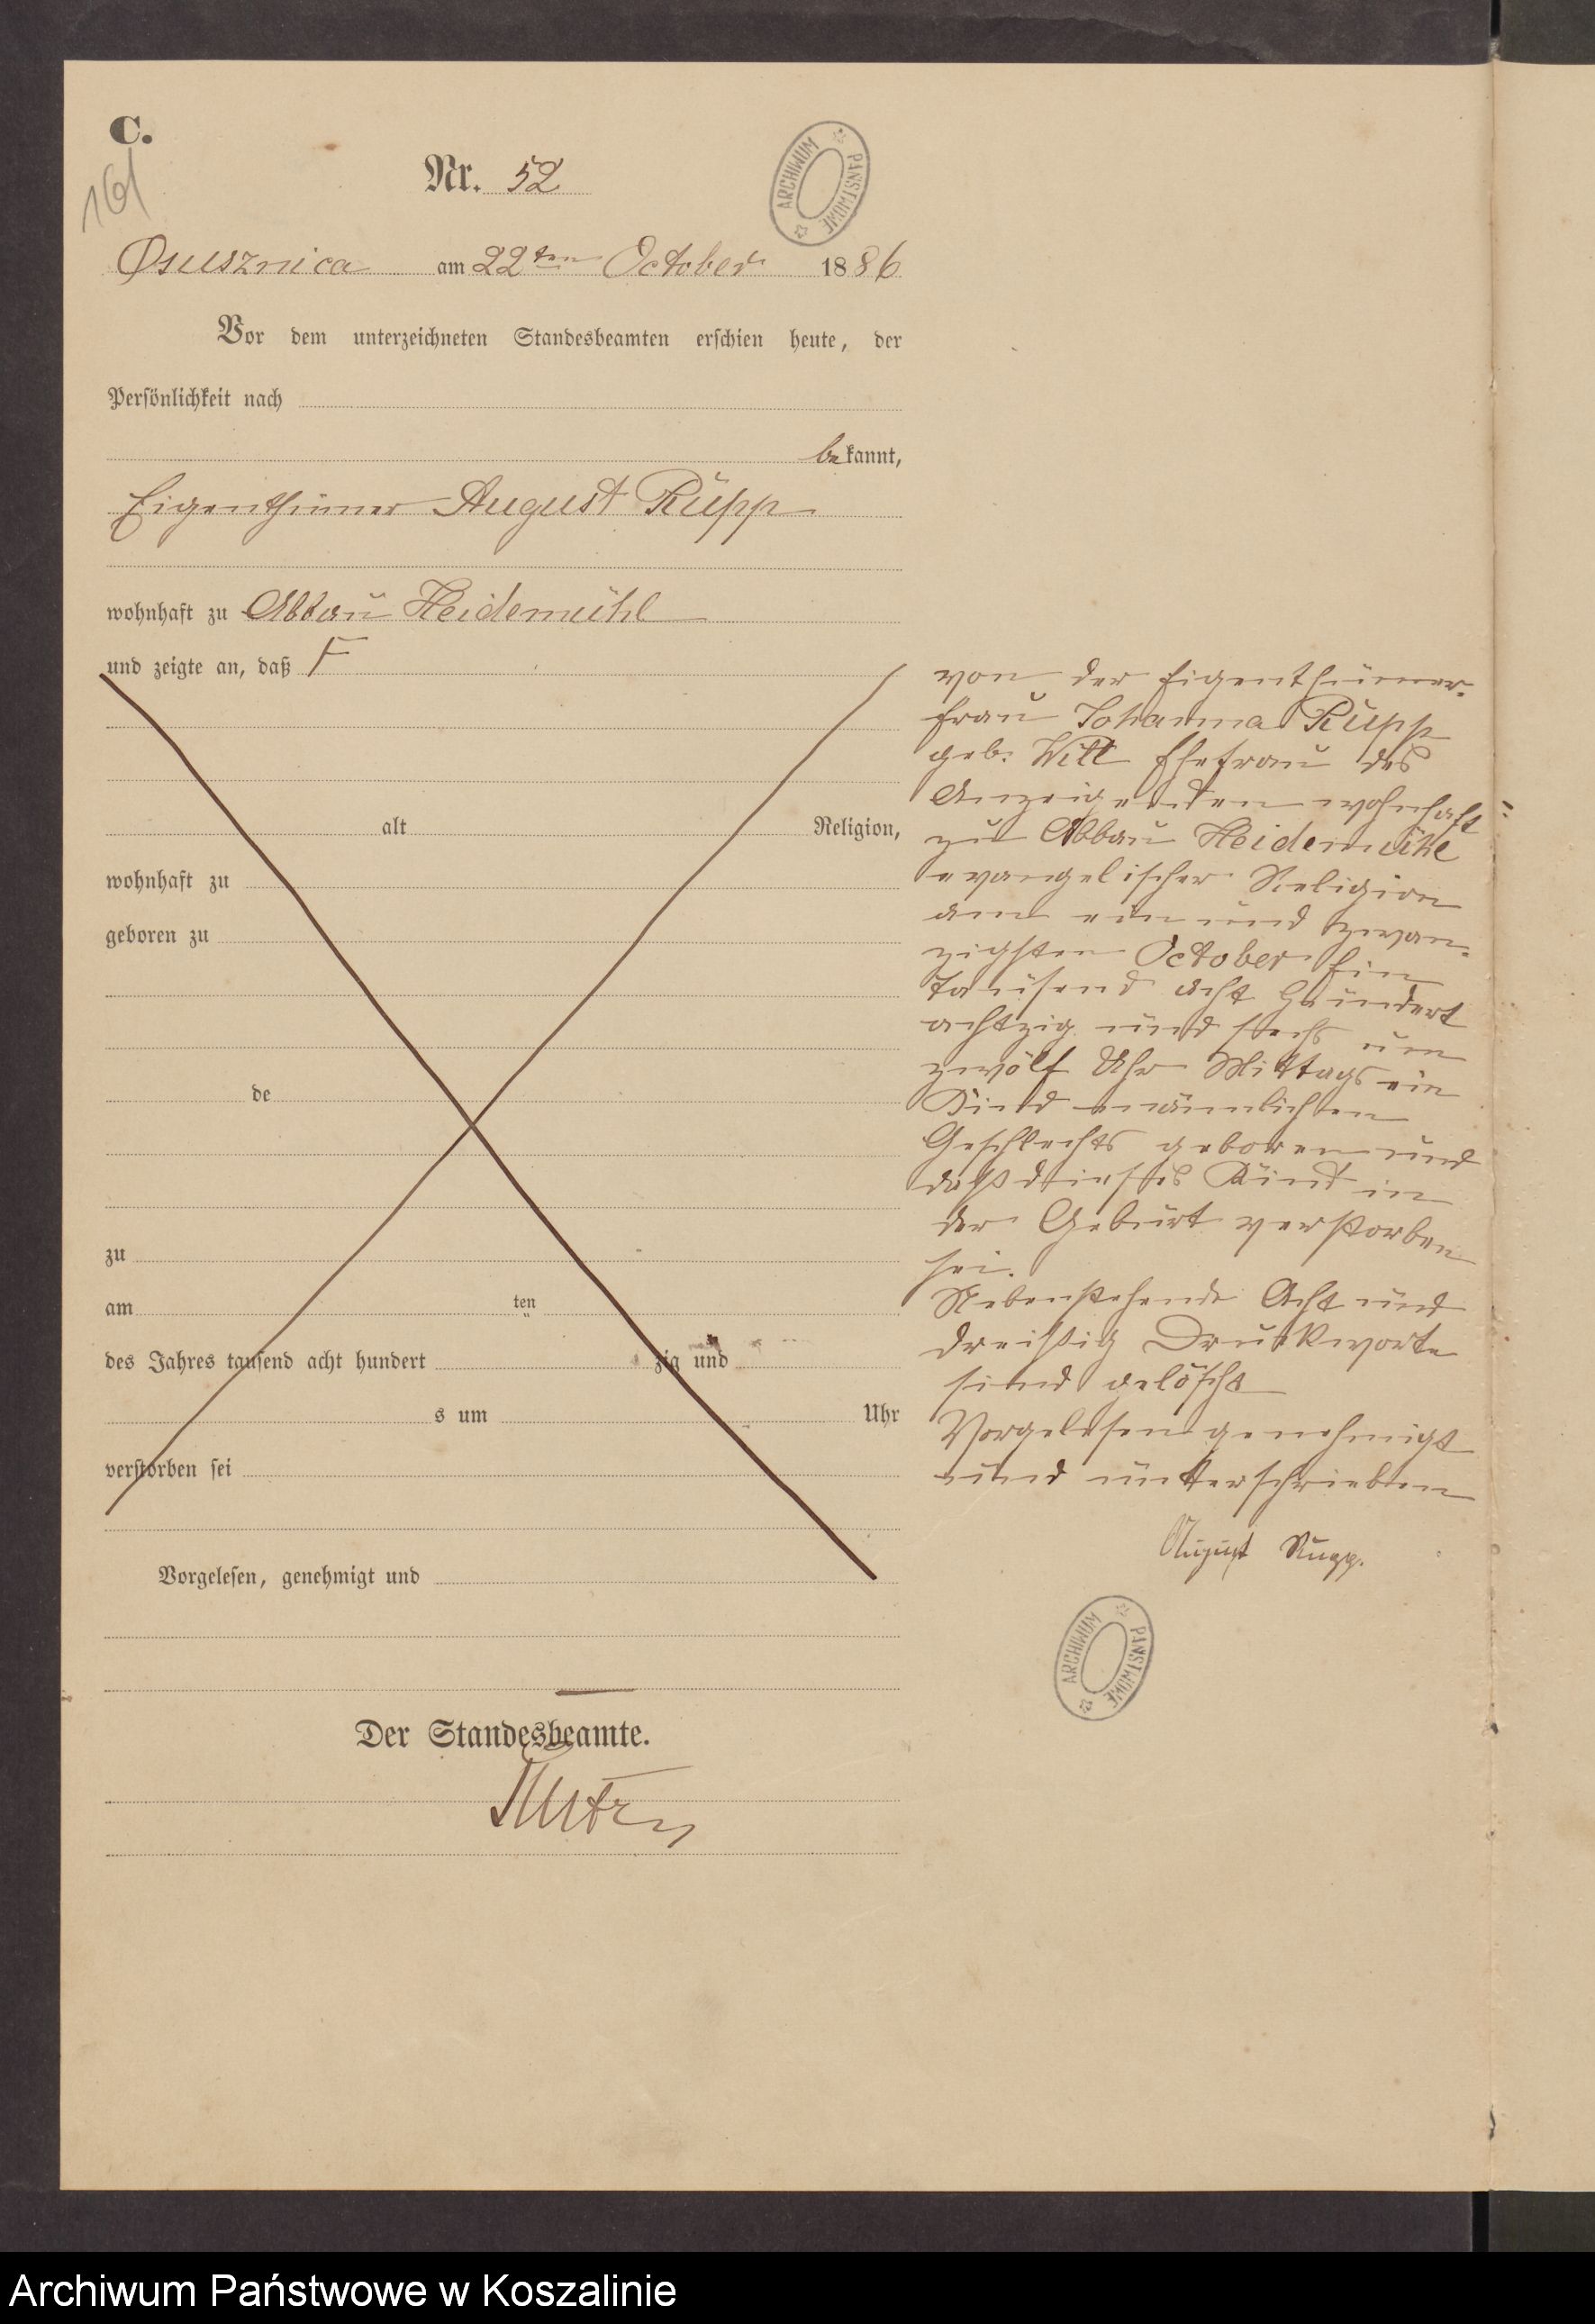 C.
161
Nr. 52
ARCHIWUM PAŃSTWOWE
Osusznica am 22ten October 1886
Vor dem unterzeichneten Standesbeamten erschien heute, der
Persönlichkeit nach
bekannt,
Eigenthümer August Rupp
wohnhaft zu Abbau Heidemühl
und zeigte an, daß F
alt Religion,
wohnhaft zu
geboren zu
de
zu
am ten
des Jahres tausend acht hundert zig und
s um Uhr
verstorben sei
Vorgelesen, genehmigt und
von der Eigenthümer-
frau Johanna Rupp
geb. Witt Ehefrau des
Anzeigenden wohnhaft
zu Abbau Heidemühl
evangelischer Religion
am ein und zwan-
zigsten October Ein
Tausend acht hundert
achtzig und sechs um
zwölf Uhr Mittags ein
Kind männlichen
Geschlechts geboren und
daß dieses Kind in
der Geburt verstorben
sei.
Nebenstehende Acht und
dreißig Druckworte
sind gelöscht
Vorgelesen genehmigt
und unterschrieben
August Rupp.
ARCHIWUM PAŃSTWOWE
Der Standesbeamte.
Archiwum Państwowe w Koszalinie